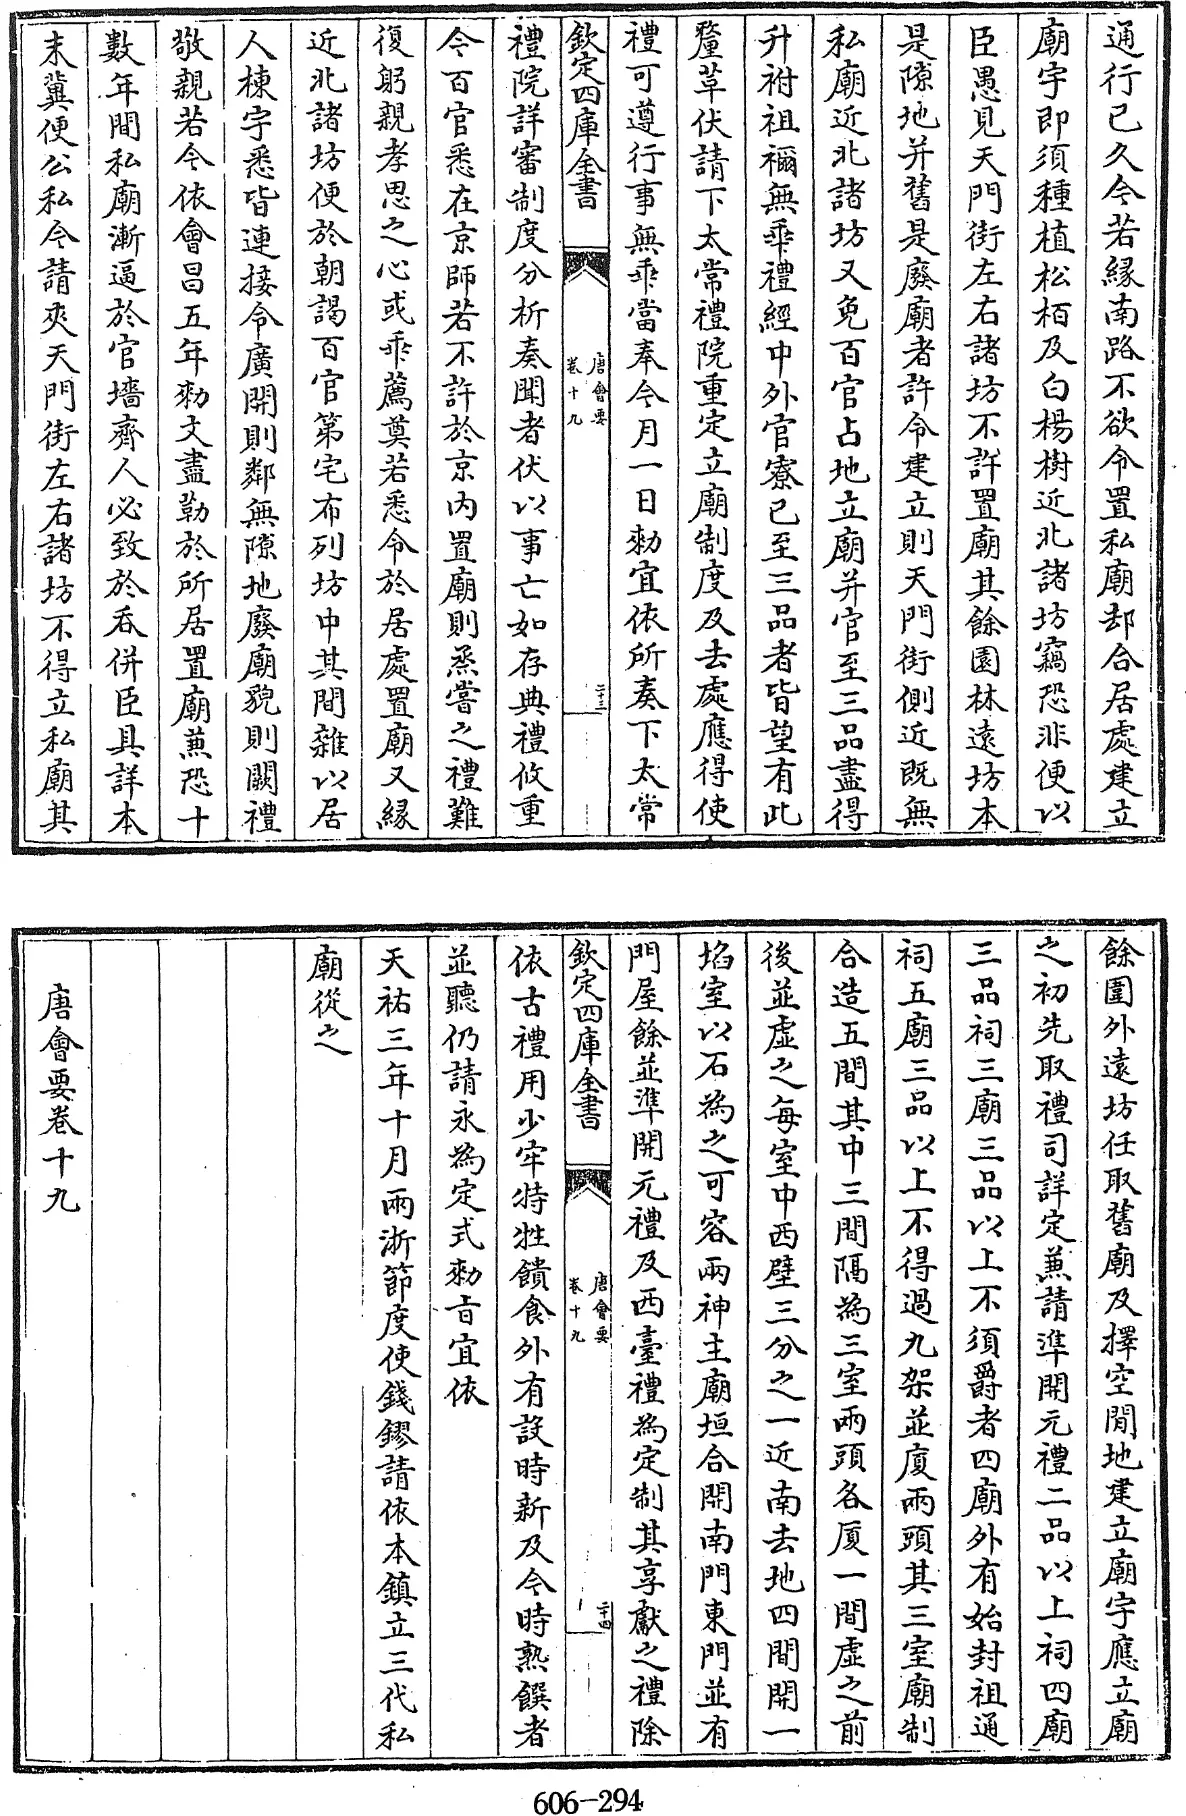 通行已久今若緣南路不欲令置私廟却合居處建立
廟宇即須種植松栢及白楊樹近北諸坊竊恐非便以
臣愚見天門街左右諸坊不許置廟其餘園林遠坊本
是隙地并舊是廢廟者許令建立則天門街側近既無
私廟近北諸坊又免百官占地立廟并官至三品盡得
升祔祖禰無乖禮經中外官寮已至三品者皆望有此
釐革伏請下太常禮院重定立廟制度及去處應得使
禮可遵行事無乖當奉今月一日勑宜依所奏下太常
欽定四庫全書
唐會要
卷十九
二十三
禮院詳審制度分析奏聞者伏以事亡如存典禮攸重
令百官悉在京師若不許於京內置廟則烝嘗之禮難
復躬親孝思之心或乖薦奠若悉令於居處置廟又緣
近北諸坊便於朝謁百官第宅布列坊中其間雜以居
人棟宇悉皆連接令廣開則鄰無隙地廢廟貌則闕禮
敬親若令依會昌五年勑文盡勒於所居置廟兼恐十
數年間私廟漸逼於官墻齊人必致於吞併臣具詳本
末冀便公私今請夾天門街左右諸坊不得立私廟其
餘圍外遠坊任取舊廟及擇空閒地建立廟宇應立廟
之初先取禮司詳定兼請準開元禮二品以上祠四廟
三品祠三廟三品以上不須爵者四廟外有始封祖通
祠五廟三品以上不得過九架並廈兩頭其三室廟制
合造五間其中三間隔為三室兩頭各厦一間虛之前
後並虛之每室中西壁三分之一近南去地四間開一
埳室以石為之可容兩神主廟垣合開南門東門並有
門屋餘並準開元禮及西臺禮為定制其享獻之禮除
欽定四庫全書
唐會要
卷十九
二十四
依古禮用少牢特牲饋食外有設時新及今時熟饌者
並聽仍請永為定式勑旨宜依
天祐三年十月兩浙節度使錢鏐請依本鎮立三代私
廟從之
唐會要卷十九
606-294